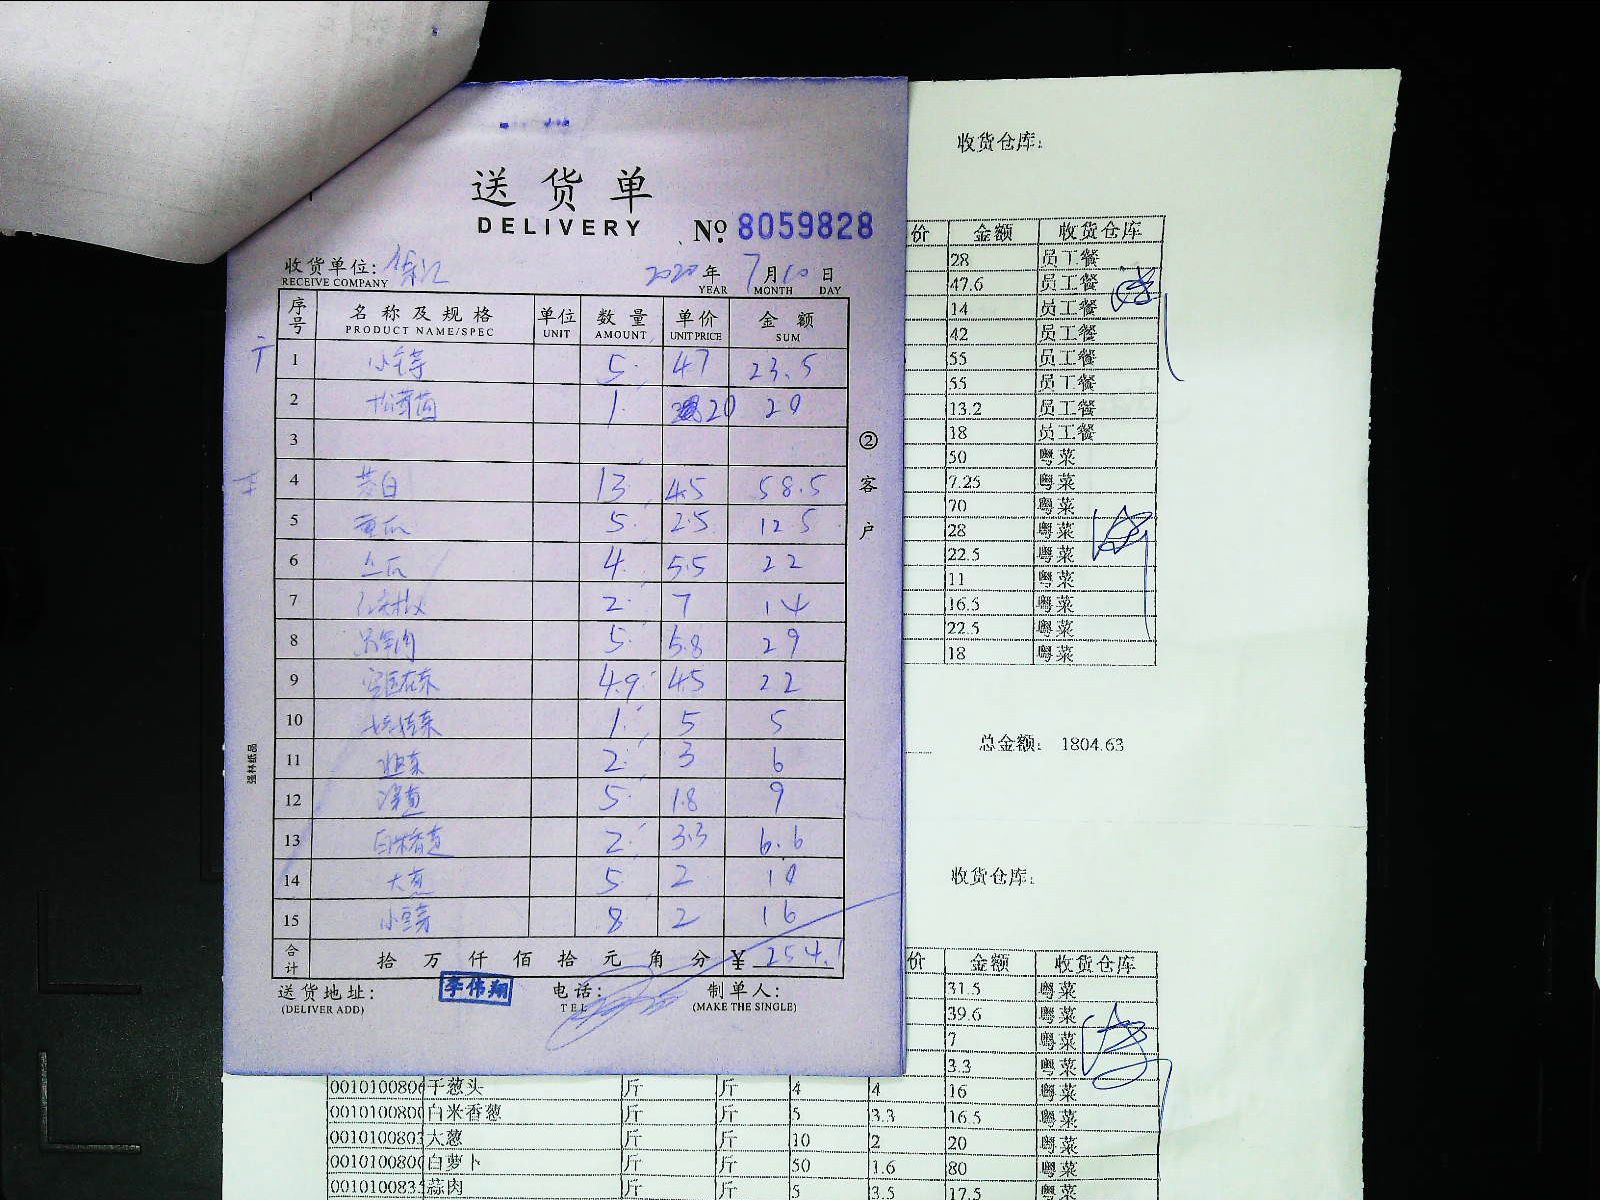 送货单
DELIVERY
№ 8059828
收货单位:
RECEIVE COMPANY
2020年7月10日
YEAR MONTH DAY
序号 名称及规格 单位 数量 单价 金额
PRODUCT NAME/SPEC UNIT AMOUNT UNIT PRICE SUM
1 5 47 23.5
2 1 20 20
3
4 13 4.5 58.5
5 黄瓜 5 2.5 12.5
6 丝瓜 4 5.5 22
7 2 7 14
8 5 5.8 29
9 4.9 4.5 22
10 1 5 5
11 2 3 6
12 洋葱 5 1.8 9
13 白米香葱 2 3.3 6.6
14 大葱 5 2 10
15 小豆芽 8 2 16
合计 拾万仟佰拾元角分 ¥ 254.1
送货地址:
(DELIVER ADD)
李伟翔
电话:
TEL
制单人:
(MAKE THE SINGLE)
②客户
强林纸品
收货仓库:
价 金额 收货仓库
28 员工餐
47.6 员工餐
14 员工餐
42 员工餐
55 员工餐
55 员工餐
13.2 员工餐
18 员工餐
50 粤菜
7.25 粤菜
70 粤菜
28 粤菜
22.5 粤菜
11 粤菜
16.5 粤菜
22.5 粤菜
18 粤菜
总金额: 1804.63
收货仓库:
价 金额 收货仓库
31.5 粤菜
39.6 粤菜
7 粤菜
3.3 粤菜
0010100806 干葱头 斤 斤 4 4 16 粤菜
001010080 白米香葱 斤 斤 5 3.3 16.5 粤菜
001010080 大葱 斤 斤 10 2 20 粤菜
001010080 白萝卜 斤 斤 50 1.6 80 粤菜
001010083 蒜肉 斤 斤 5 3.5 17.5 粤菜